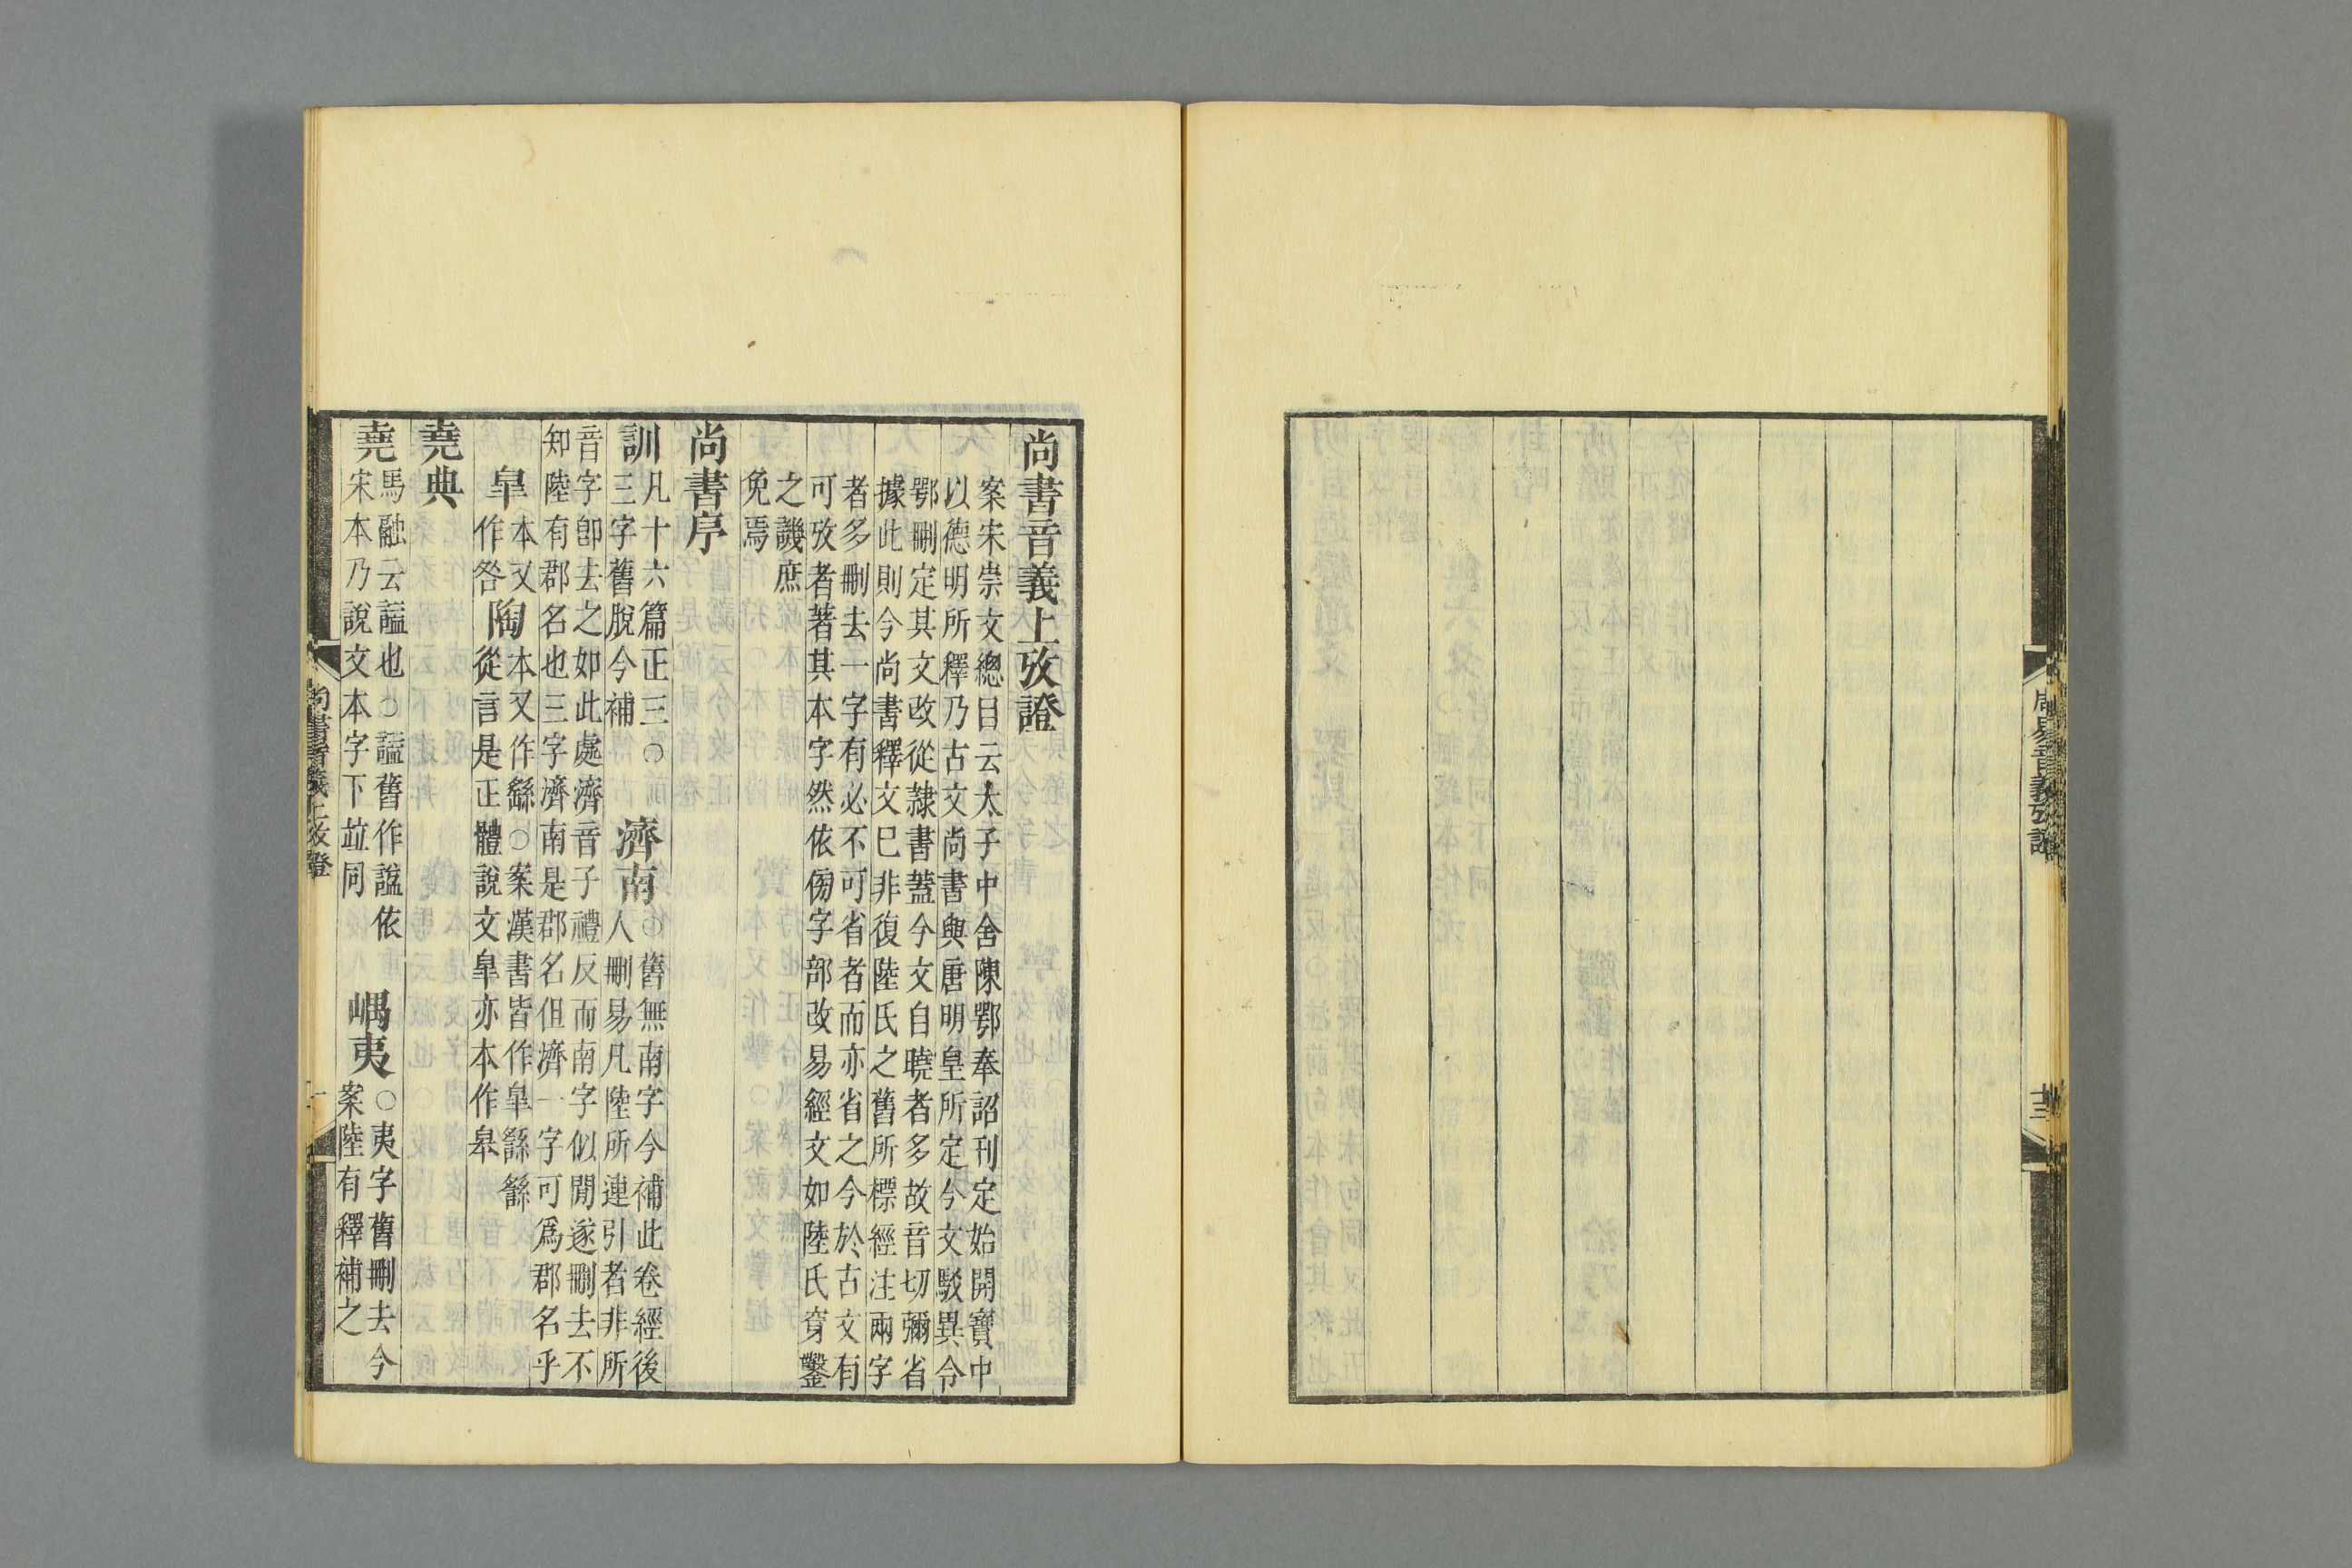 周易音義攷證
十三
尚書音義上攷證
案宋崇文總目云太子中舍陳鄂奉詔刊定始開寶中
以德明所釋乃古文尚書與唐明皇所定今文駮異令
鄂刪定其文改從隸書蓋今文自曉者多故音切彌省
據此則今尚書釋文巳非復陸氏之舊所標經注兩字
者多刪去一字有必不可省者而亦省之今於古文有
可攷者著其本字然依傍字部改易經文如陸氏穿鑿
之譏庶
免焉
尚書序
訓
凡十六篇正三○
三字舊脫今補
濟南
○舊無南字今補此卷經後
人刪易凡陸所連引者非所
音字卽去之如此處濟音子禮反而南字似閒遂刪去不
知陸有郡名也三字濟南是郡名但濟一字可爲郡名乎
皐
本又
作咎
陶
本又作繇○案漢書皆作皐繇繇
從言是正體說文皐亦本作皋
堯典
堯
馬融云謚也○謚舊作諡依
宋本乃說文本字下竝同
嵎夷
○夷字舊刪去今
案陸有釋補之
尚書音義上攷證
一